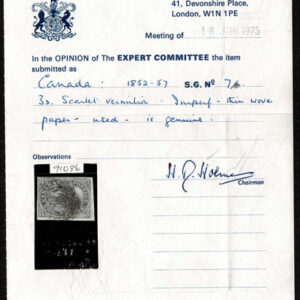 41, Devonshire Place,
London, W1N 1PE
Meeting of 18 JUN 1975
In the OPINION of The EXPERT COMMITTEE the item
submitted as
Canada: 1852-57 S.G. Nº 7
3d. Scarlet-vermilion Imperf - thin wove
paper - used - is genuine.
Observations
91086
Chairman